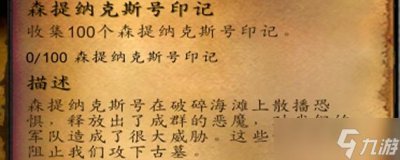 森提纳克斯号印记
收集100个森提纳克斯号印记。
0/100 森提纳克斯号印记
描述
森提纳克斯号在破碎海滩上散播恐
惧，释放出了成群的恶魔，对我们的
军队造成了很大威胁。这些
阻止我们攻下古墓。
九游